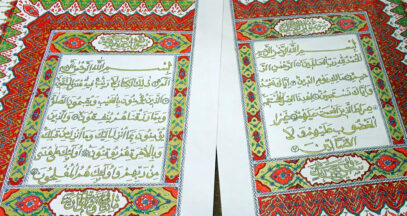 بسم الله الرحمن الرحيم
الحمد لله رب العلمين الرحمن الر
حيم ملك يوم الدين اياك نعبد و
اياك نستعين اهدنا الصراط المستقيم
صراط الذين انعمت عليهم غير ا
لمغضوب عليهم ولا
الضالين
بسم الله الرحمن الرحيم
الم ذلك الكتاب لا ريب فيه هدى للمتقين
الذين يؤمنون بالغيب ويقيمون الصلو
ة ومما رزقنهم ينفقون والذين
يؤمنون بما انزل اليك وما انزل من قبلك
وبالاخرة هم يوقنون اولئك على هدى
من ربهم واولئك هم المفلحون